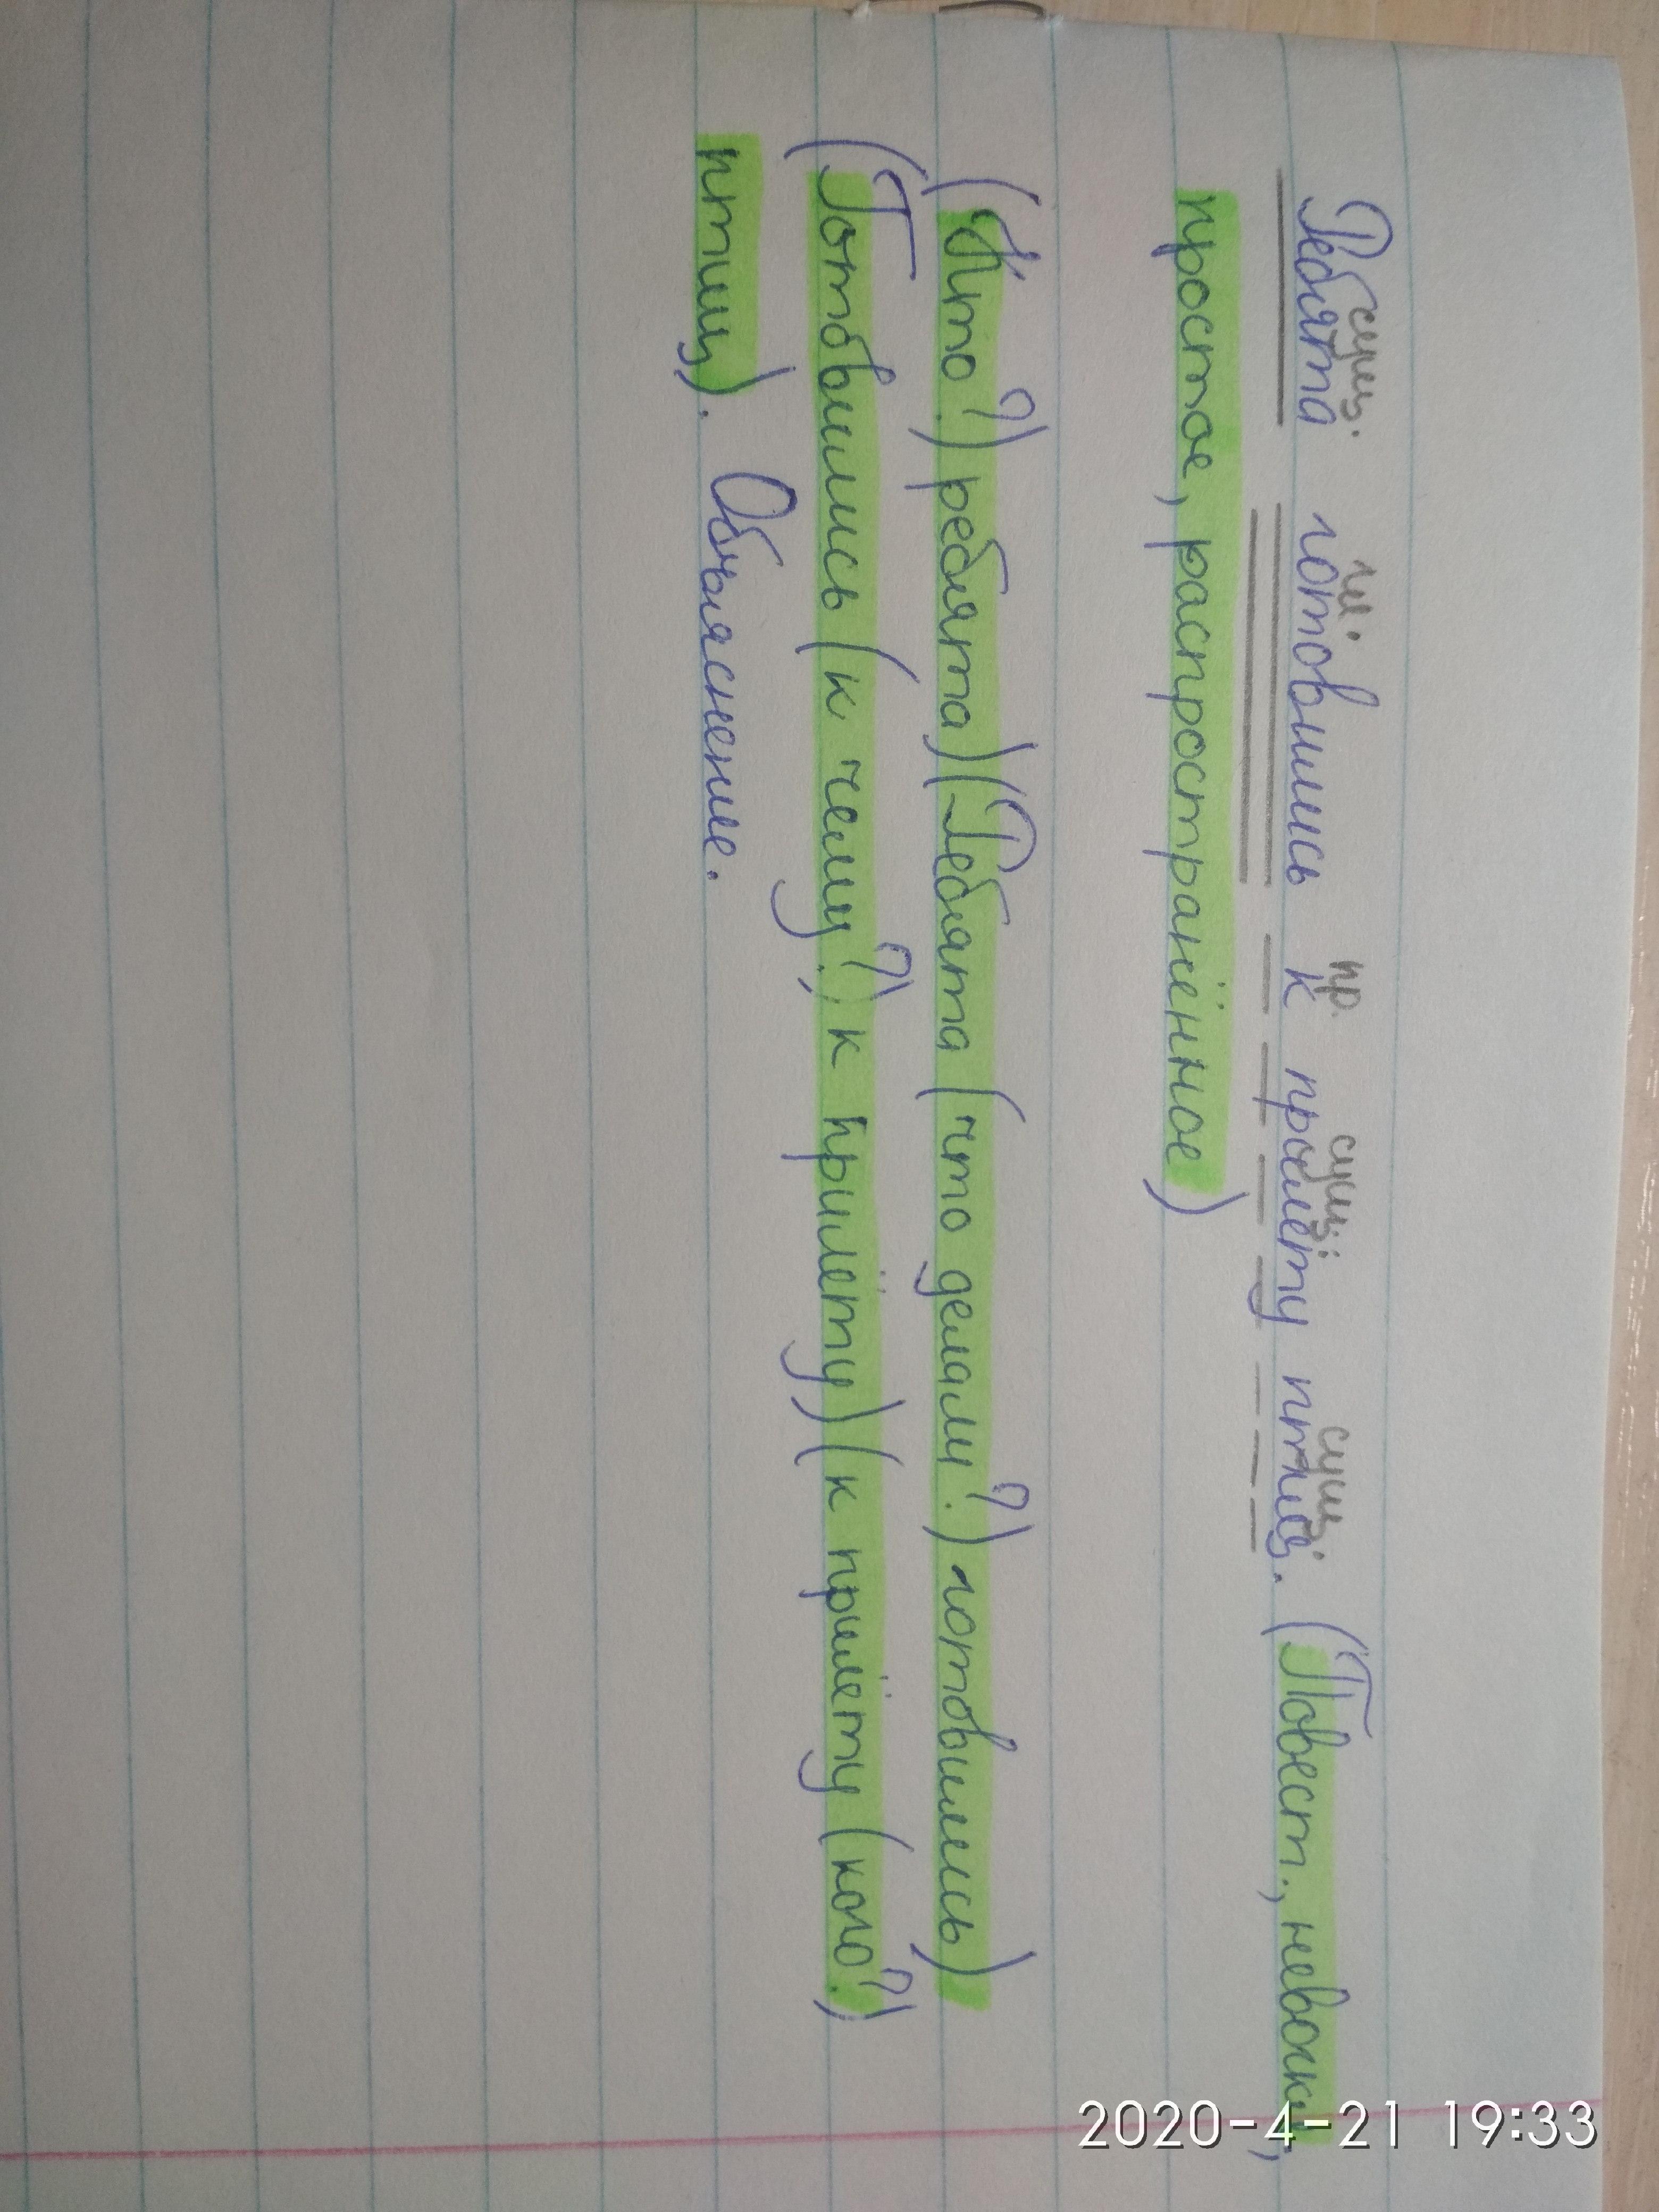 сущ. гл. пр. сущ. сущ.
Ребята готовились к пролёту птиц. (Повест., невоскл.,
простое, распространённое)
(Кто?) ребята) (Ребята (что делали?) готовились)
(Готовились (к чему?) к прилёту) (к прилёту (кого?)
птиц). Объяснение.
2020-4-21 19:33